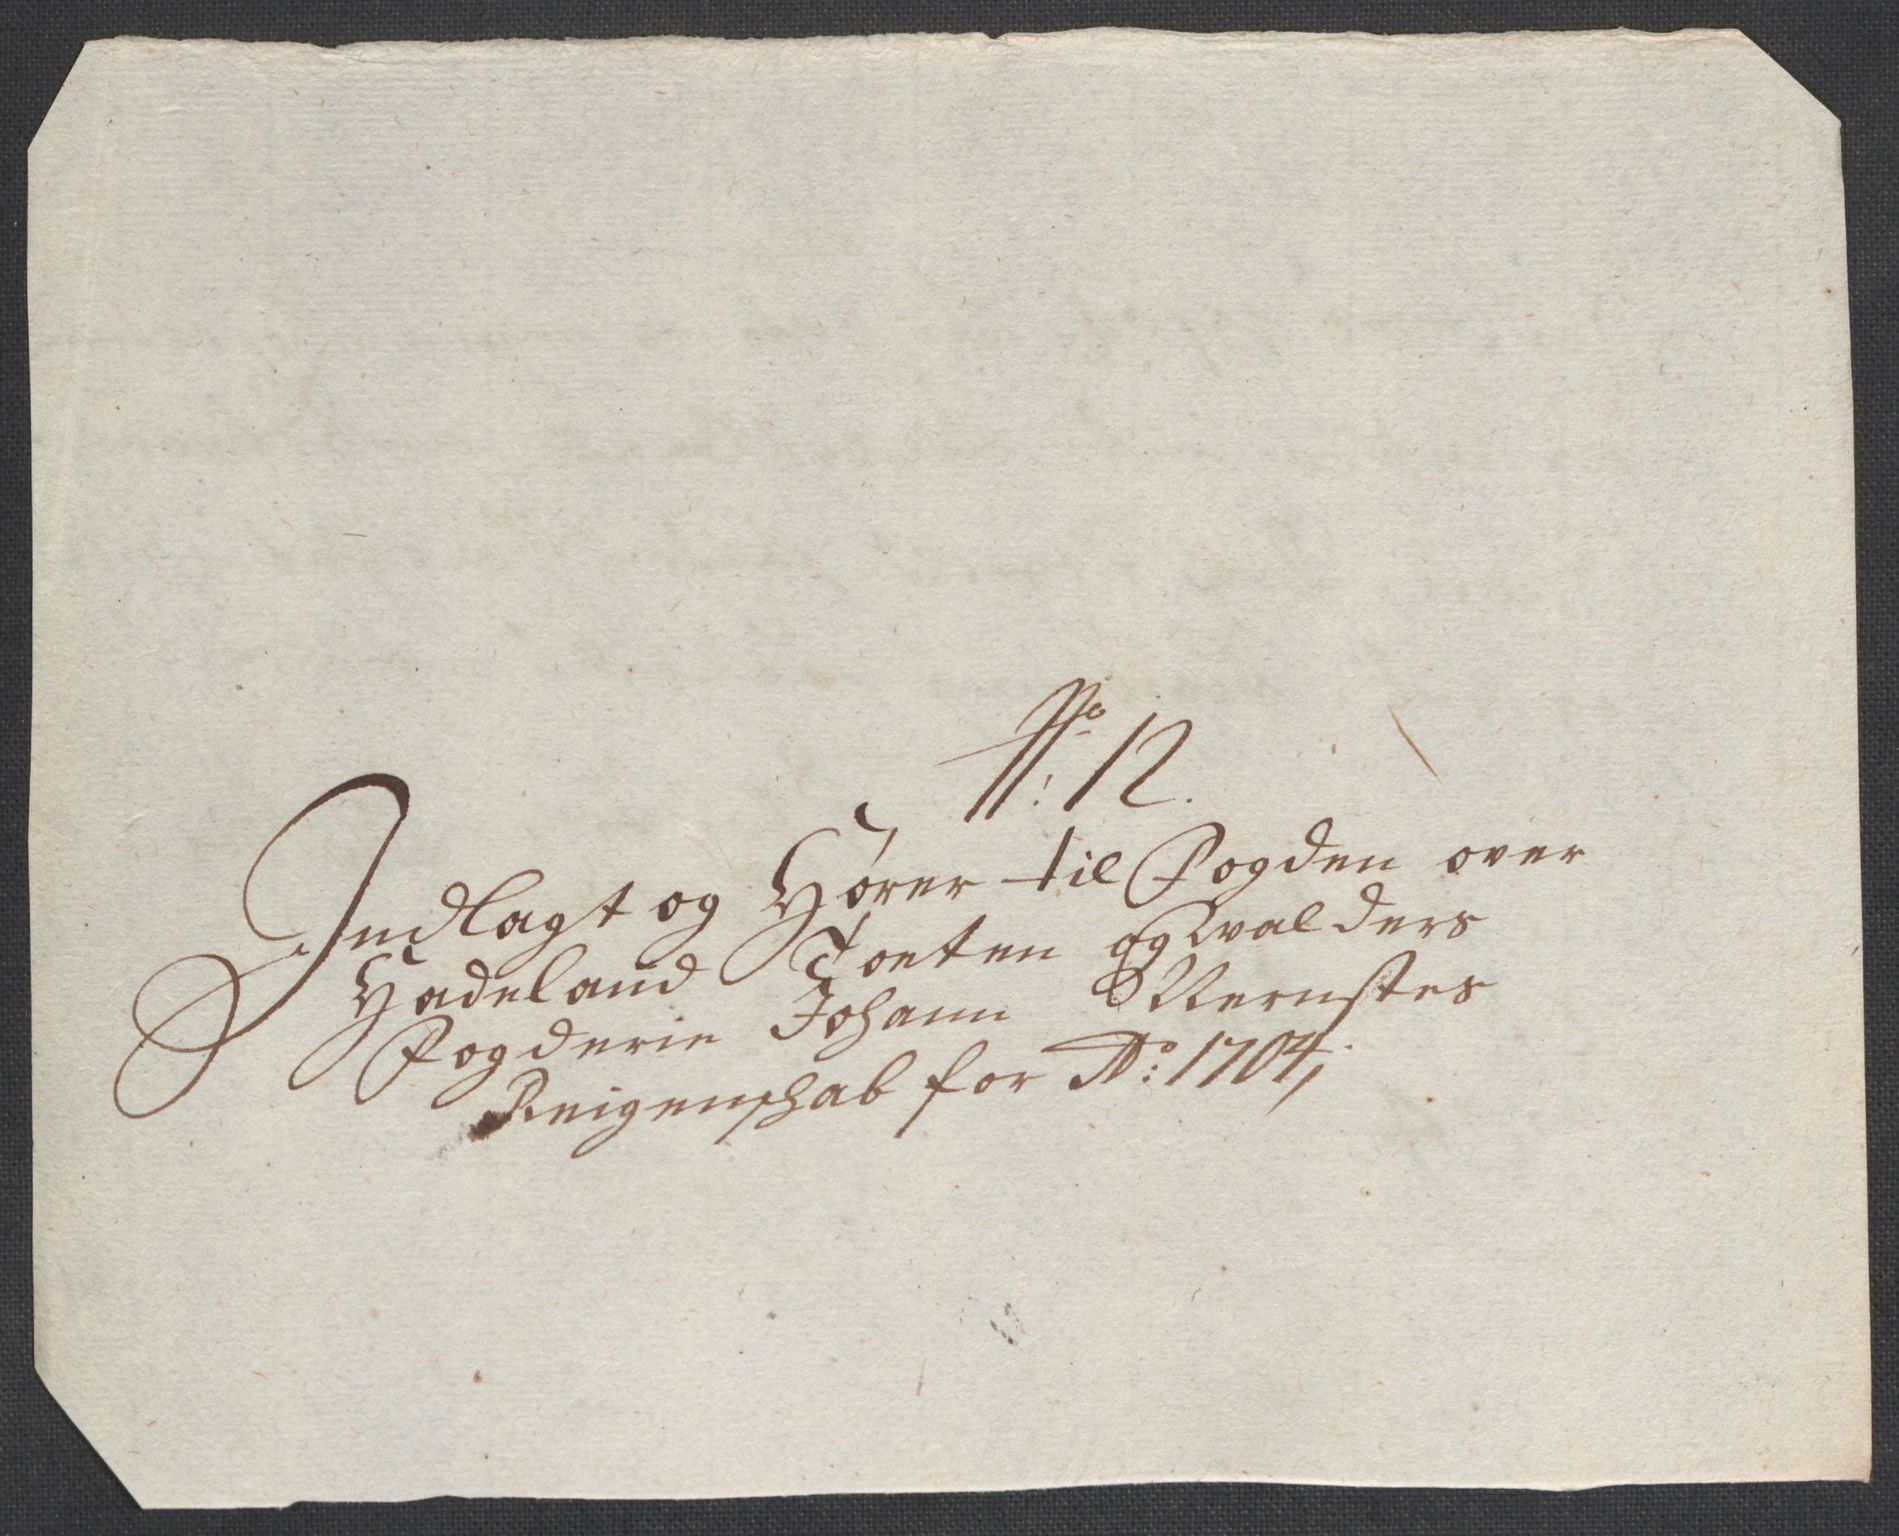 No: 12.
Indlagt og Hörer til Fogden over
Hadeland Toeten og Walders
Fogderie Johann Wernstes
Reigenschab for Ao: 1704;